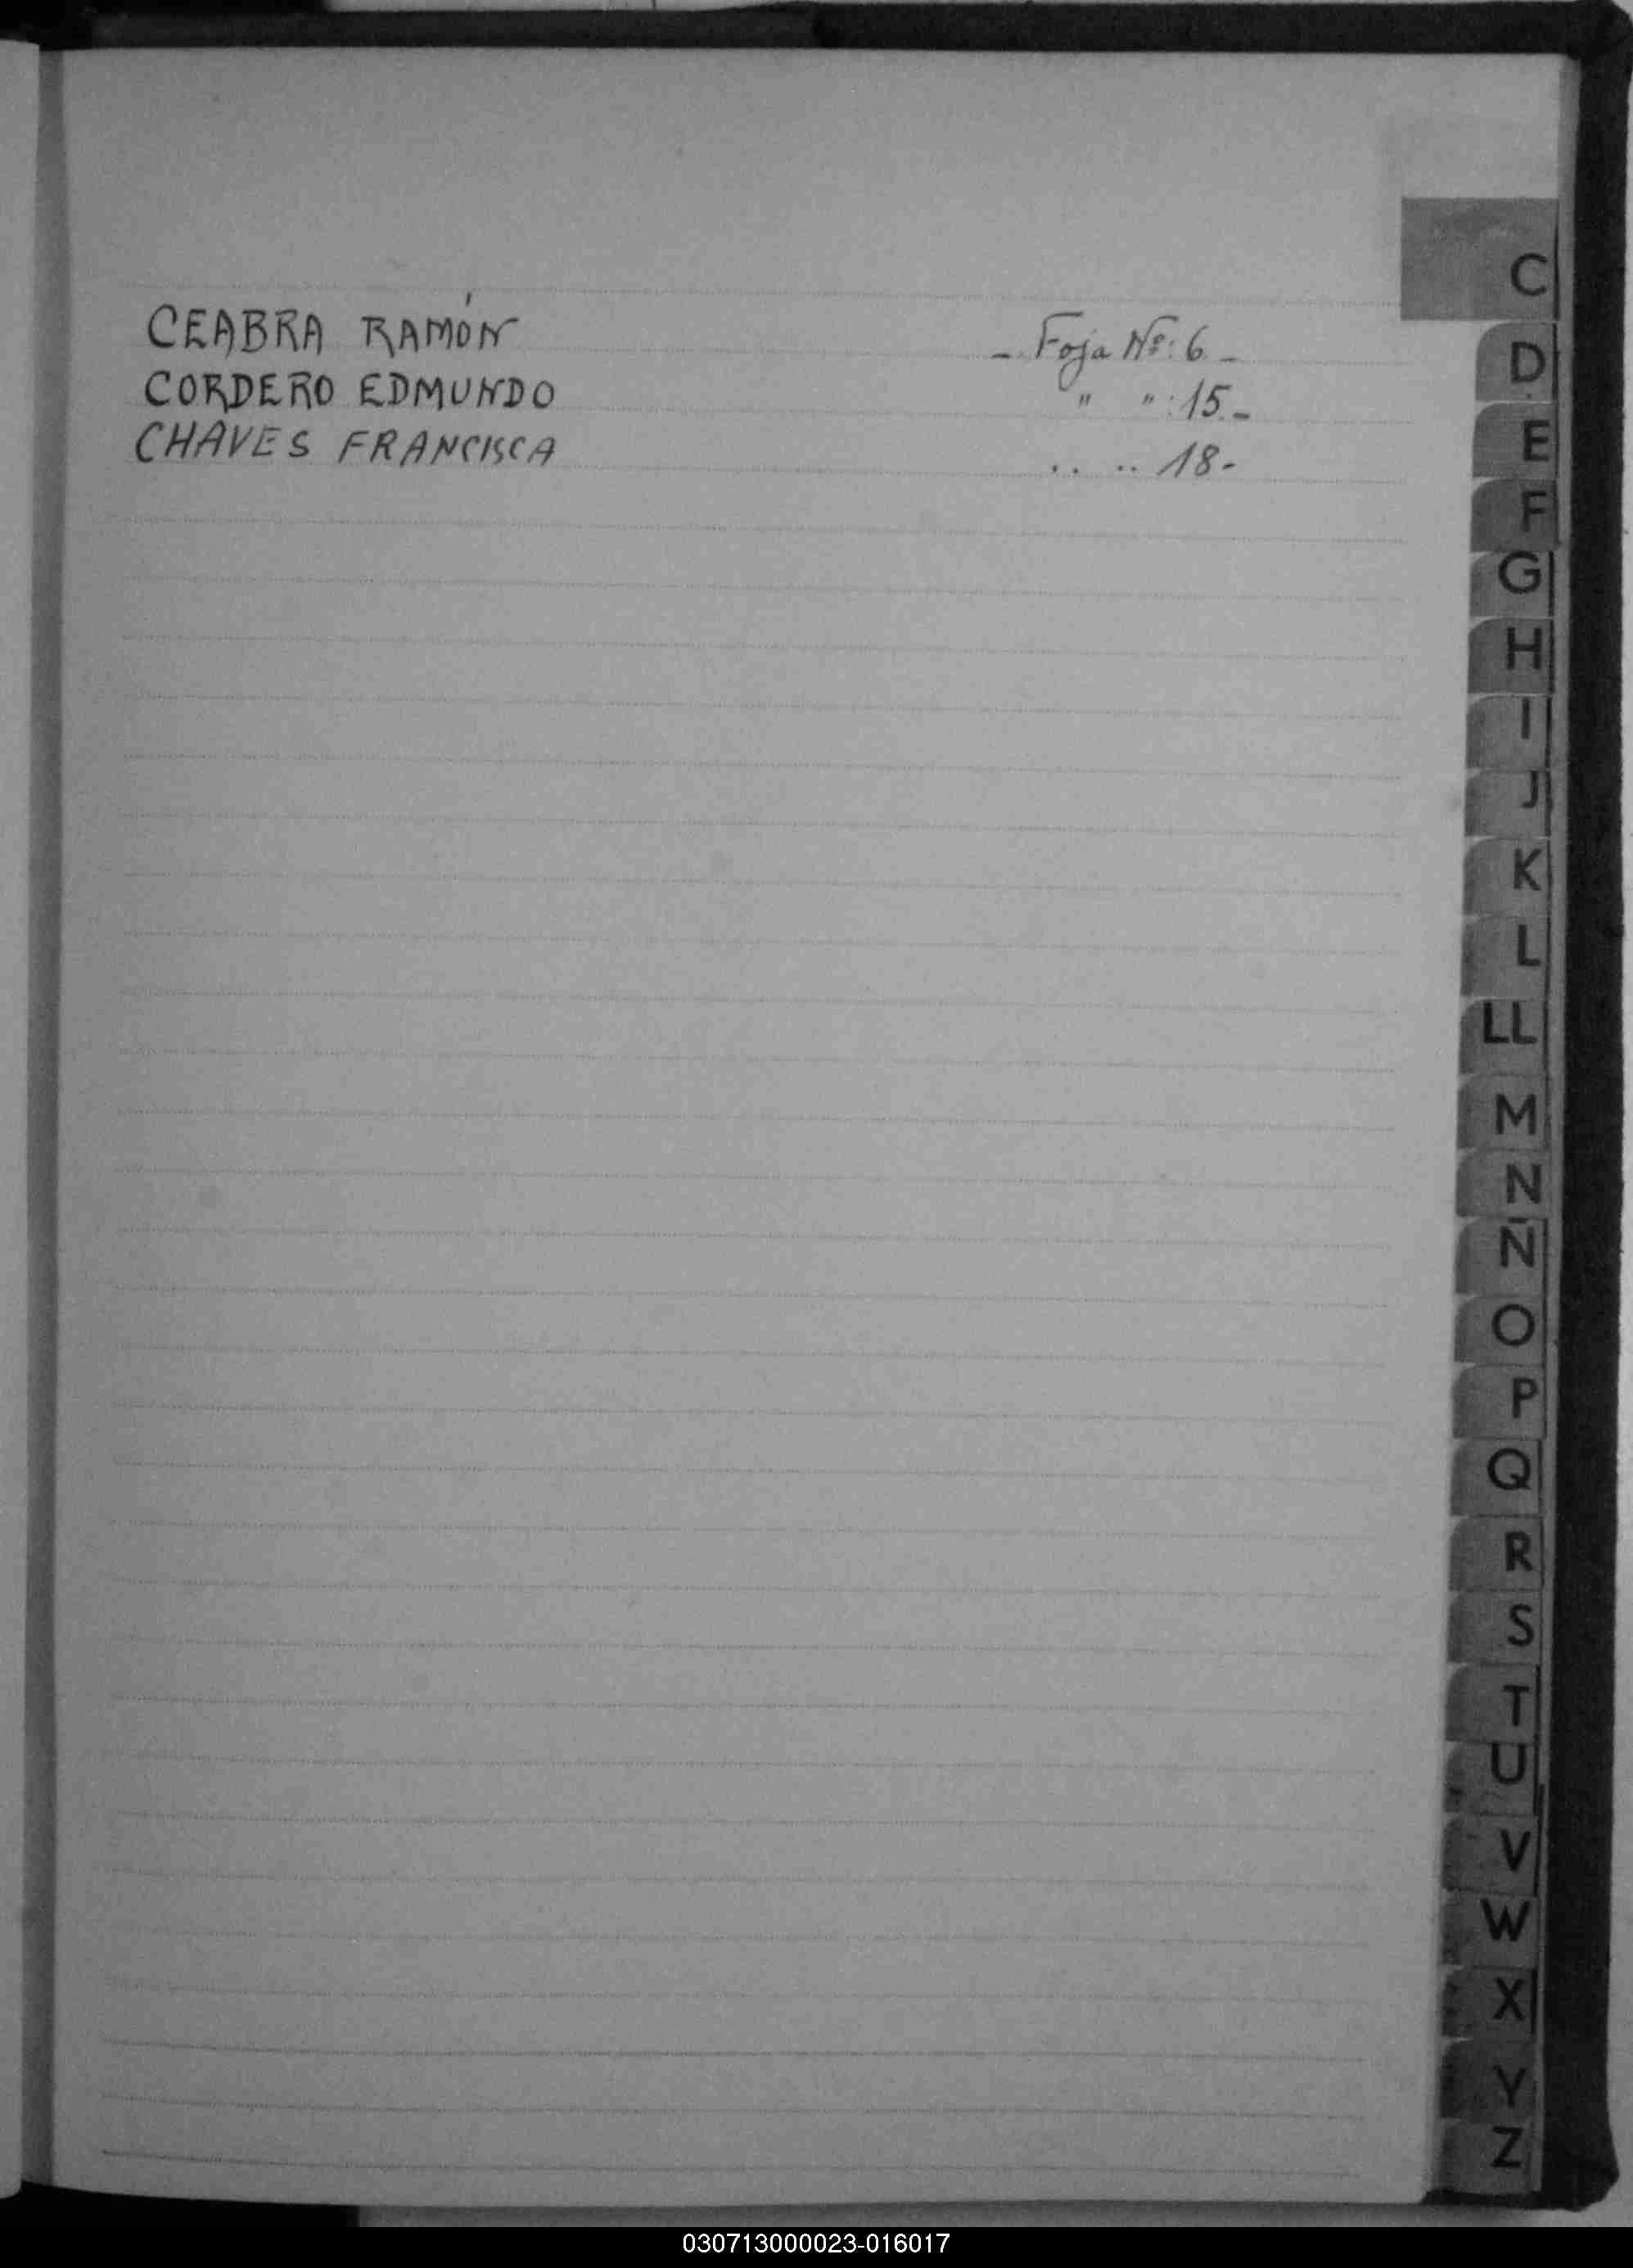 CEABRA RAMÓN - Foja Nº: 6 -
CORDERO EDMUNDO " " : 15 -
CHAVES FRANCISCA .. .. 18 -
C
D
E
F
G
H
I
J
K
L
LL
M
N
Ñ
O
P
Q
R
S
T
U
V
W
X
Y
Z
030713000023-016017